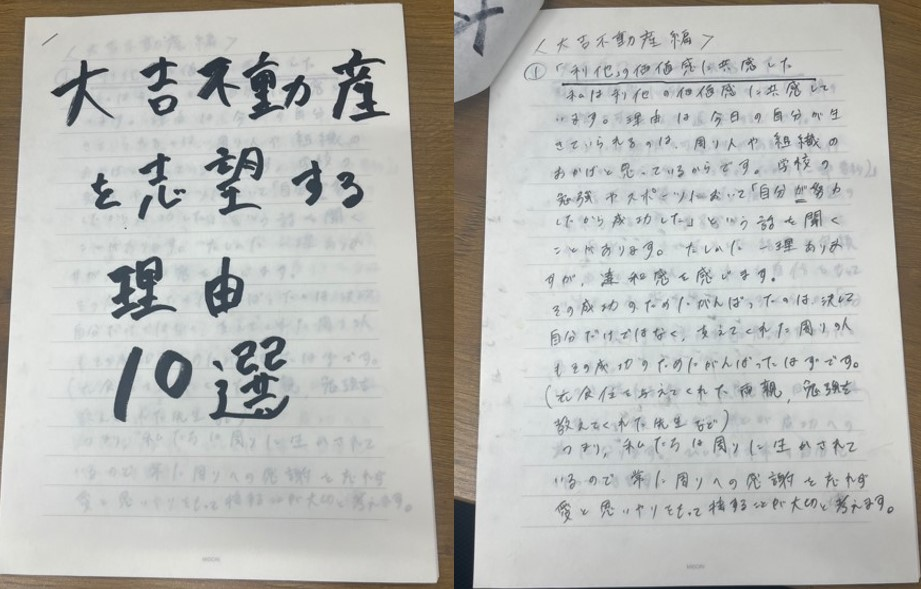 大吉不動産
を志望する
理由
10選
〈大吉不動産編〉
①「利他」の価値感に共感した
私は利他の価値感に共感して
います。理由は今日の自分が生
きていられるのは、周り人や組織の
おかげと思っているからです。学校の
勉強やスポーツにおいて「自分が努力
したから成功した」という話を聞く
ことがあります。たしかに一理ありま
すが、違和感を感じます。
その成功のためにがんばったのは決して
自分だけではなく、支えてくれた周りの人
もその成功のためにがんばったはずです。
(衣食住を与えてくれた両親、勉強を
教えてくれた先生など)
つまり、私たちは周りに生かされて
いるので常に周りへの感謝を忘れず
愛と思いやりをもって接することが大切と考えます。